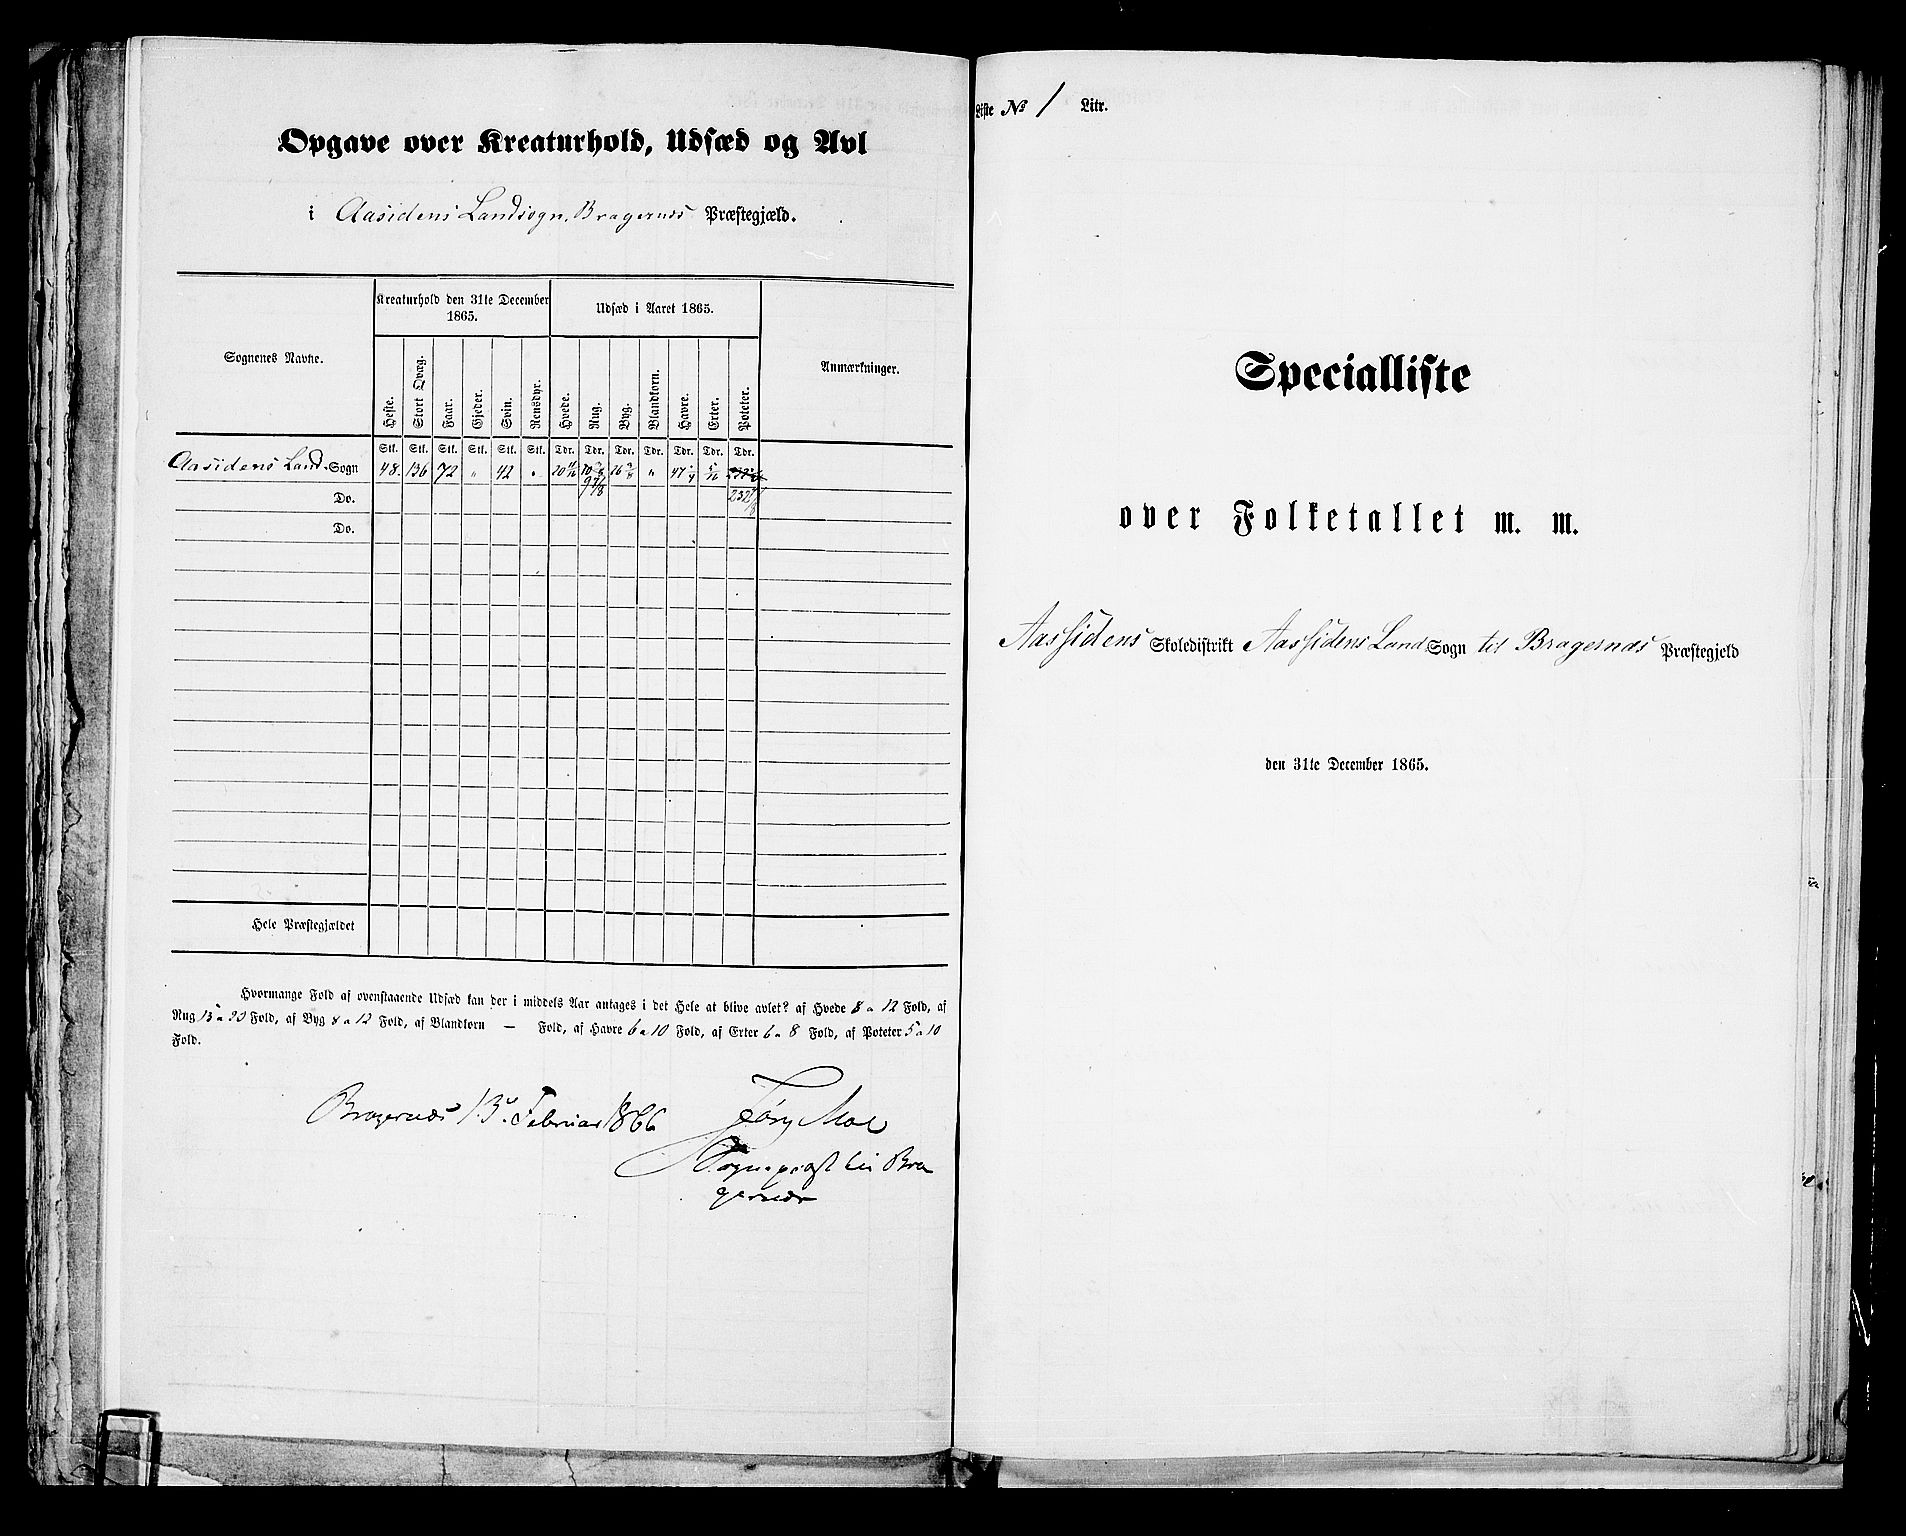 Opgave over Kreaturhold, Udsæd og Avl
i Aasidens Landsogn, Bragernæs Præstegjæld.
Sognenes Navne.
Kreaturhold den 31te December 1865.
Udsæd i Aaret 1865.
Anmærkninger.
Heste. Stort Qvæg. Faar. Gjeder. Svin. Rensdyr. Hvede. Rug. Byg. Blandkorn. Havre. Erter. Poteter.
Stk. Stk. Stk. Stk. Stk. Stk. Tdr. Tdr. Tdr. Tdr. Tdr. Tdr. Tdr.
Aasidens Land-Sogn 48. 136 72 " 42 "
Do.
Do.
Hele Præstegjældet
Hvormange Fold af ovenstaaende Udsæd kan der i middels Aar antages i det Hele at blive avlet? af Hvede 8 a 12 Fold, af
Rug 15 a 20 Fold, af Byg 8 a 12 Fold, af Blandkorn — Fold, af Havre 6 a 10 Fold, af Erter 6 a 8 Fold, af Poteter 5 a 10
Fold.
Bragernæs 13. Februar 1866
Jørg Moe
Sognepræst til Bra
gernæs
Liste No 1 Litr.
Specialliste
over Folketallet m. m.
Aassidens Skoledistrikt Aassidens Land Sogn til Bragernæs Præstegjeld
den 31te December 1865.